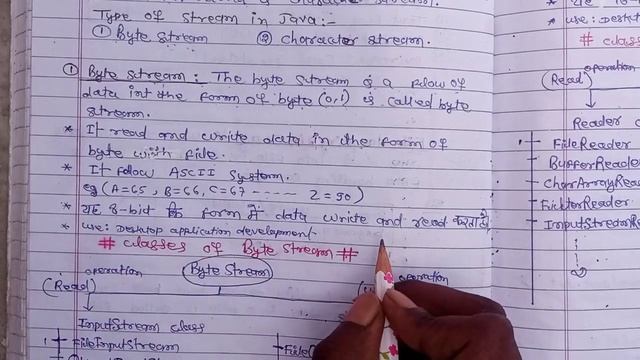 Type of stream in Java:-
① Byte stream ② Character stream.
① Byte stream : The byte stream is a flow of
data int the form of byte (0,1) is called byte
stream.
* It read and write data in the form of
byte with file.
* It follow ASCII System.
eg (A=65, B=66, C=67 ----- Z=90)
* यह 8-bit के form में data write and read करता है
* use: Desktop application development
# classes of Byte Stream #
operation
Byte Stream
operation
(Read)
InputStream class
FileInputStream
* use: Deskto
# class
operation
(Read)
Reader
FileReader
BufferReade
CharArrayRea
FilterReader
InputStreamRe